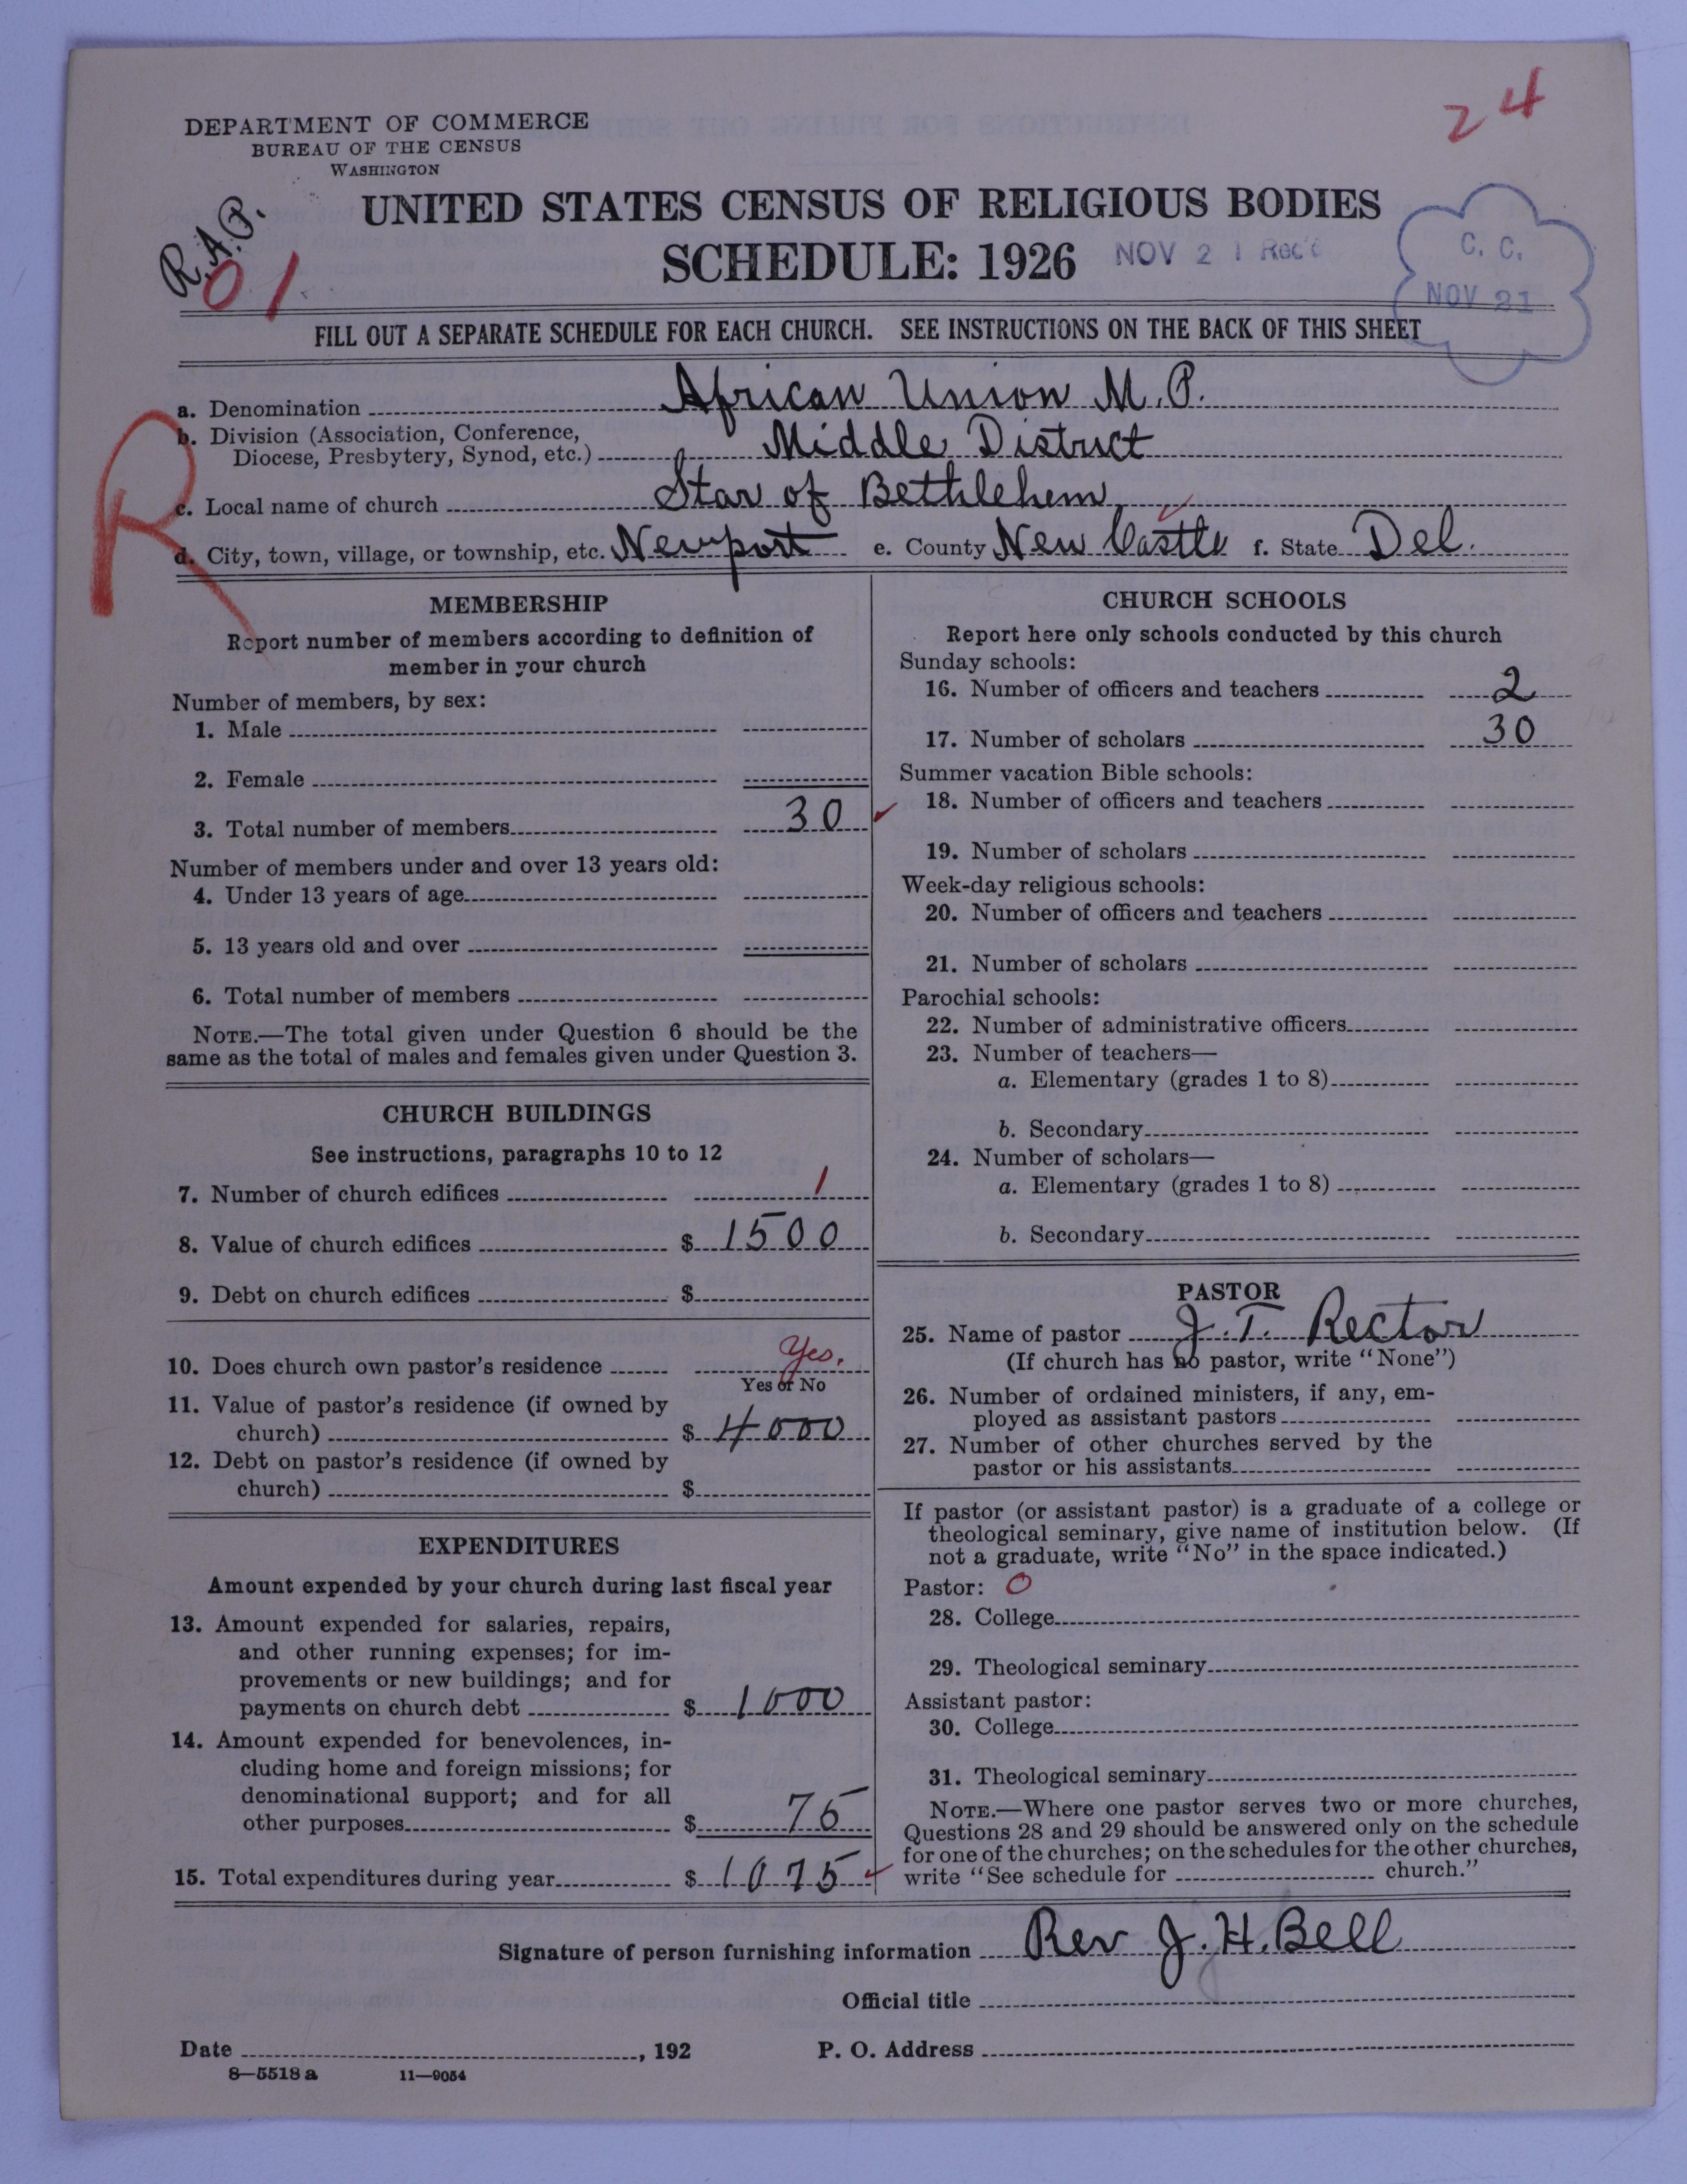 24
DEPARTMENT OF COMMERCE
BUREAU OF THE CENSUS
WASHINGTON
R.A.P.
01
UNITED STATES CENSUS OF RELIGIOUS BODIES
SCHEDULE: 1926
NOV 21 Rec'd
C. C.
NOV 21
FILL OUT A SEPARATE SCHEDULE FOR EACH CHURCH. SEE INSTRUCTIONS ON THE BACK OF THIS SHEET
R
a. Denomination African Union M.P.
b. Division (Association, Conference,
Diocese, Presbytery, Synod, etc.) Middle District
c. Local name of church Star of Bethlehem
d. City, town, village, or township, etc. Newport e. County New Castle f. State Del.
MEMBERSHIP
Report number of members according to definition of
member in your church
Number of members, by sex:
1. Male
2. Female
3. Total number of members 30
Number of members under and over 13 years old:
4. Under 13 years of age
5. 13 years old and over
6. Total number of members
NOTE.—The total given under Question 6 should be the
same as the total of males and females given under Question 3.
CHURCH BUILDINGS
See instructions, paragraphs 10 to 12
7. Number of church edifices 1
8. Value of church edifices $ 1500
9. Debt on church edifices $
10. Does church own pastor's residence Yes.
Yes or No
11. Value of pastor's residence (if owned by
church) $ 4000
12. Debt on pastor's residence (if owned by
church) $
EXPENDITURES
Amount expended by your church during last fiscal year
13. Amount expended for salaries, repairs,
and other running expenses; for im-
provements or new buildings; and for
payments on church debt $ 1000
14. Amount expended for benevolences, in-
cluding home and foreign missions; for
denominational support; and for all
other purposes $ 75
15. Total expenditures during year $ 1075
CHURCH SCHOOLS
Report here only schools conducted by this church
Sunday schools:
16. Number of officers and teachers 2
17. Number of scholars 30
Summer vacation Bible schools:
18. Number of officers and teachers
19. Number of scholars
Week-day religious schools:
20. Number of officers and teachers
21. Number of scholars
Parochial schools:
22. Number of administrative officers
23. Number of teachers—
a. Elementary (grades 1 to 8)
b. Secondary
24. Number of scholars—
a. Elementary (grades 1 to 8)
b. Secondary
PASTOR
25. Name of pastor J. T. Rector
(If church has no pastor, write "None")
26. Number of ordained ministers, if any, em-
ployed as assistant pastors
27. Number of other churches served by the
pastor or his assistants
If pastor (or assistant pastor) is a graduate of a college or
theological seminary, give name of institution below. (If
not a graduate, write "No" in the space indicated.)
Pastor: O
28. College
29. Theological seminary
Assistant pastor:
30. College
31. Theological seminary
NOTE.—Where one pastor serves two or more churches,
Questions 28 and 29 should be answered only on the schedule
for one of the churches; on the schedules for the other churches,
write "See schedule for church."
Signature of person furnishing information Rev J. H. Bell
Official title
Date , 192 P. O. Address
8—5518 a 11—9054